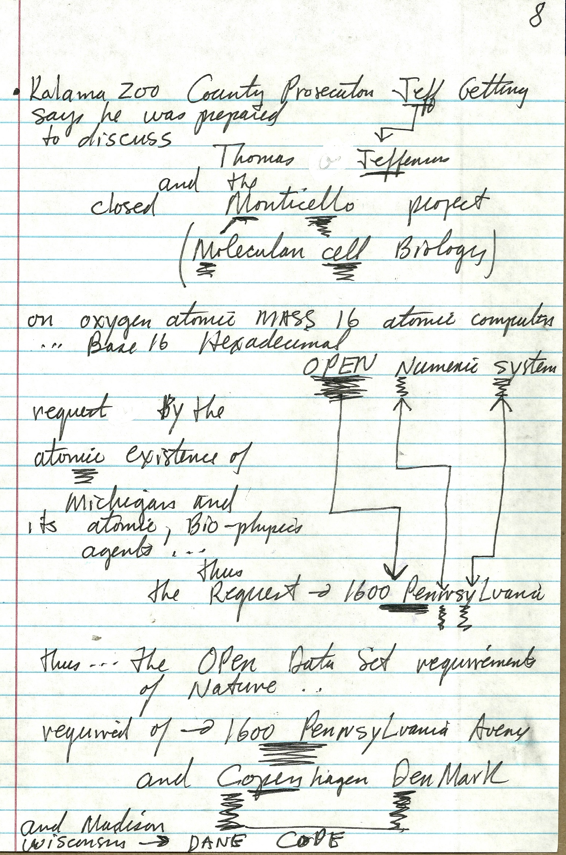 8
• Kalama zoo County Prosecutor Jeff Getting
says he was prepared
to discuss
Thomas or Jefferus
and the
closed Monticello project
(Molecular cell Biology)
on oxygen atomic MASS 16 atomic computers
... Base 16 Hexadecimal
OPEN Numeric system
request By the
atomic existence of
Michigans and
its atomic, Bio-physics
agents ...
thus
the Request → 1600 Pennsylvania
thus ... the OPen Data Set requirements
of Nature ..
required of → 1600 Pennsylvania Aveny
and Copenhagen DenMark
and Madison
Wisconsin → DANE CODE